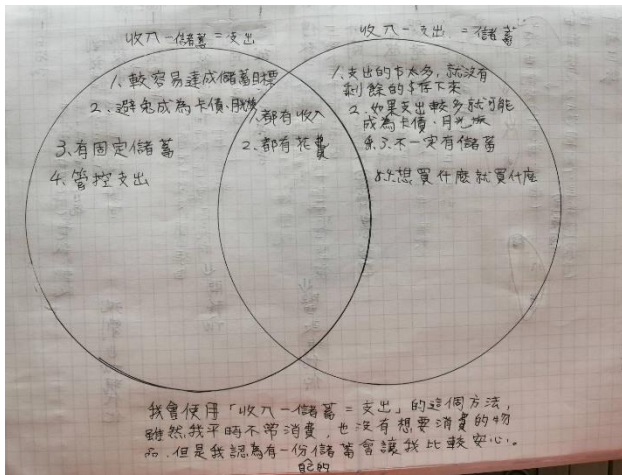 收入-儲蓄=支出
1、較容易達成儲蓄目標
2、避免成為卡債、月
3、有固定儲蓄
4、管控支出
1、都有收入
2、都有花費
收入-支出 =儲蓄
1、支出的$太多,就沒有
剩餘的$存下來
2、如果支出較多就可能
成為卡債、月光族
3、不一定有儲蓄
4、想買什麼就買什麼
我會使用「收入-儲蓄=支出」的這個方法,
雖然我平時不常消費,也沒有想要消費的物
品,但是我認為有一份儲蓄會讓我比較安心。
自己的